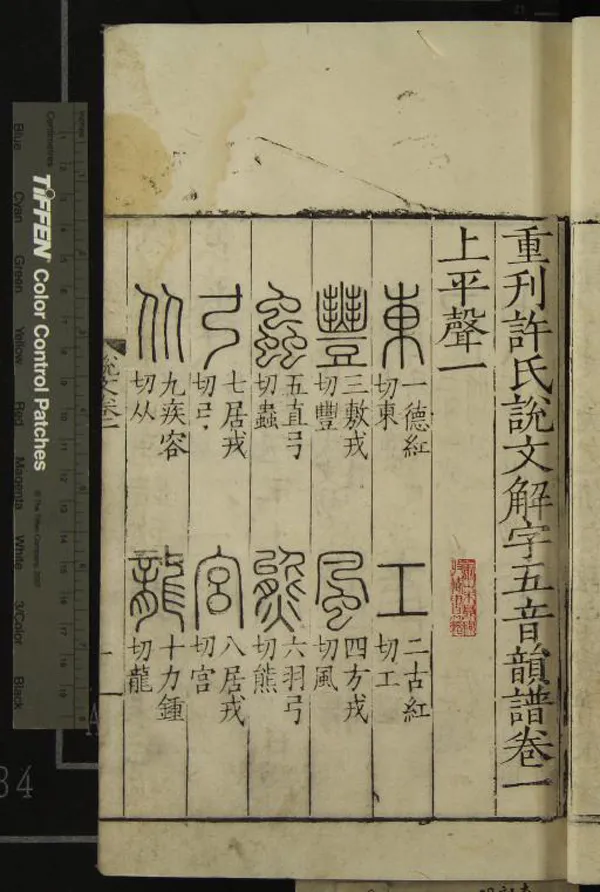 重刊許氏說文解字五音韻譜卷一
上平聲一
東 一德紅切東
工 二古紅切工
豐 三敷戎切豐
風 四方戎切風
蟲 五直弓切蟲
熊 六羽弓切熊
弓 七居戎切弓
宮 八居戎切宮
从 九疾容切从
龍 十力鍾切龍
說文卷一
TIFFEN Color Control Patches
© The Tiffen Company, 2007
Centimetres
Blue
Cyan
Green
Yellow
Red
Magenta
White
3/Color
Black